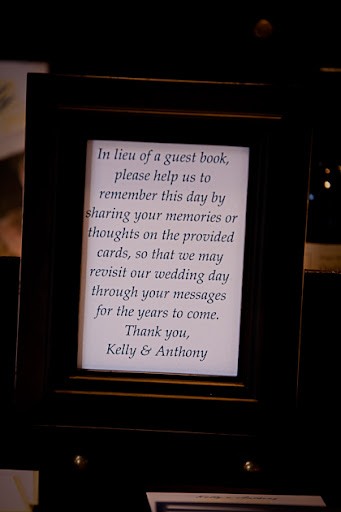 In lieu of a guest book,
please help us to
remember this day by
sharing your memories or
thoughts on the provided
cards, so that we may
revisit our wedding day
through your messages
for the years to come.
Thank you,
Kelly & Anthony